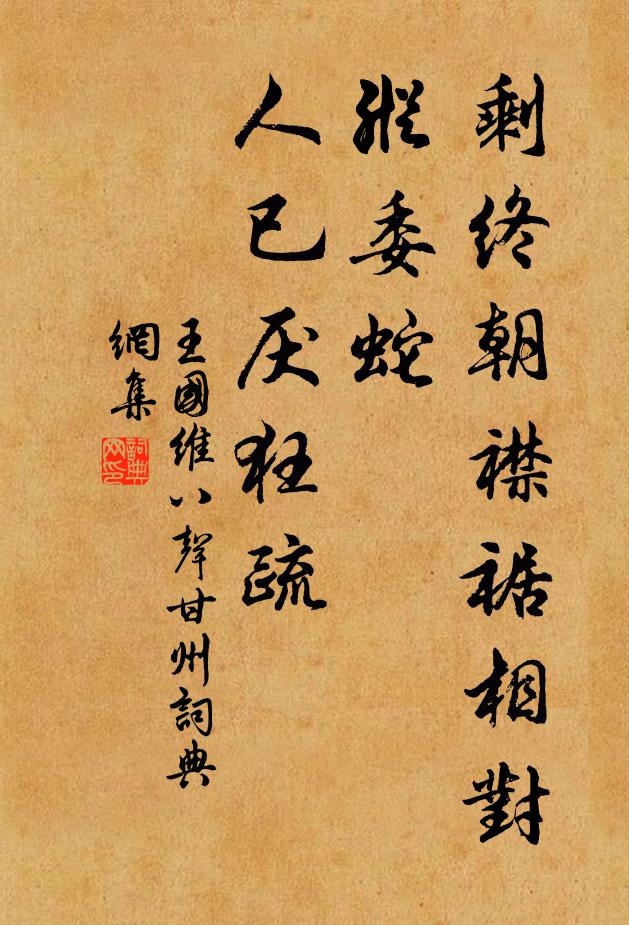 剩终朝襟裾相對
縱委蛇
人已厌狂疏
王國維八聲甘州詞典
網集
詞典
网印